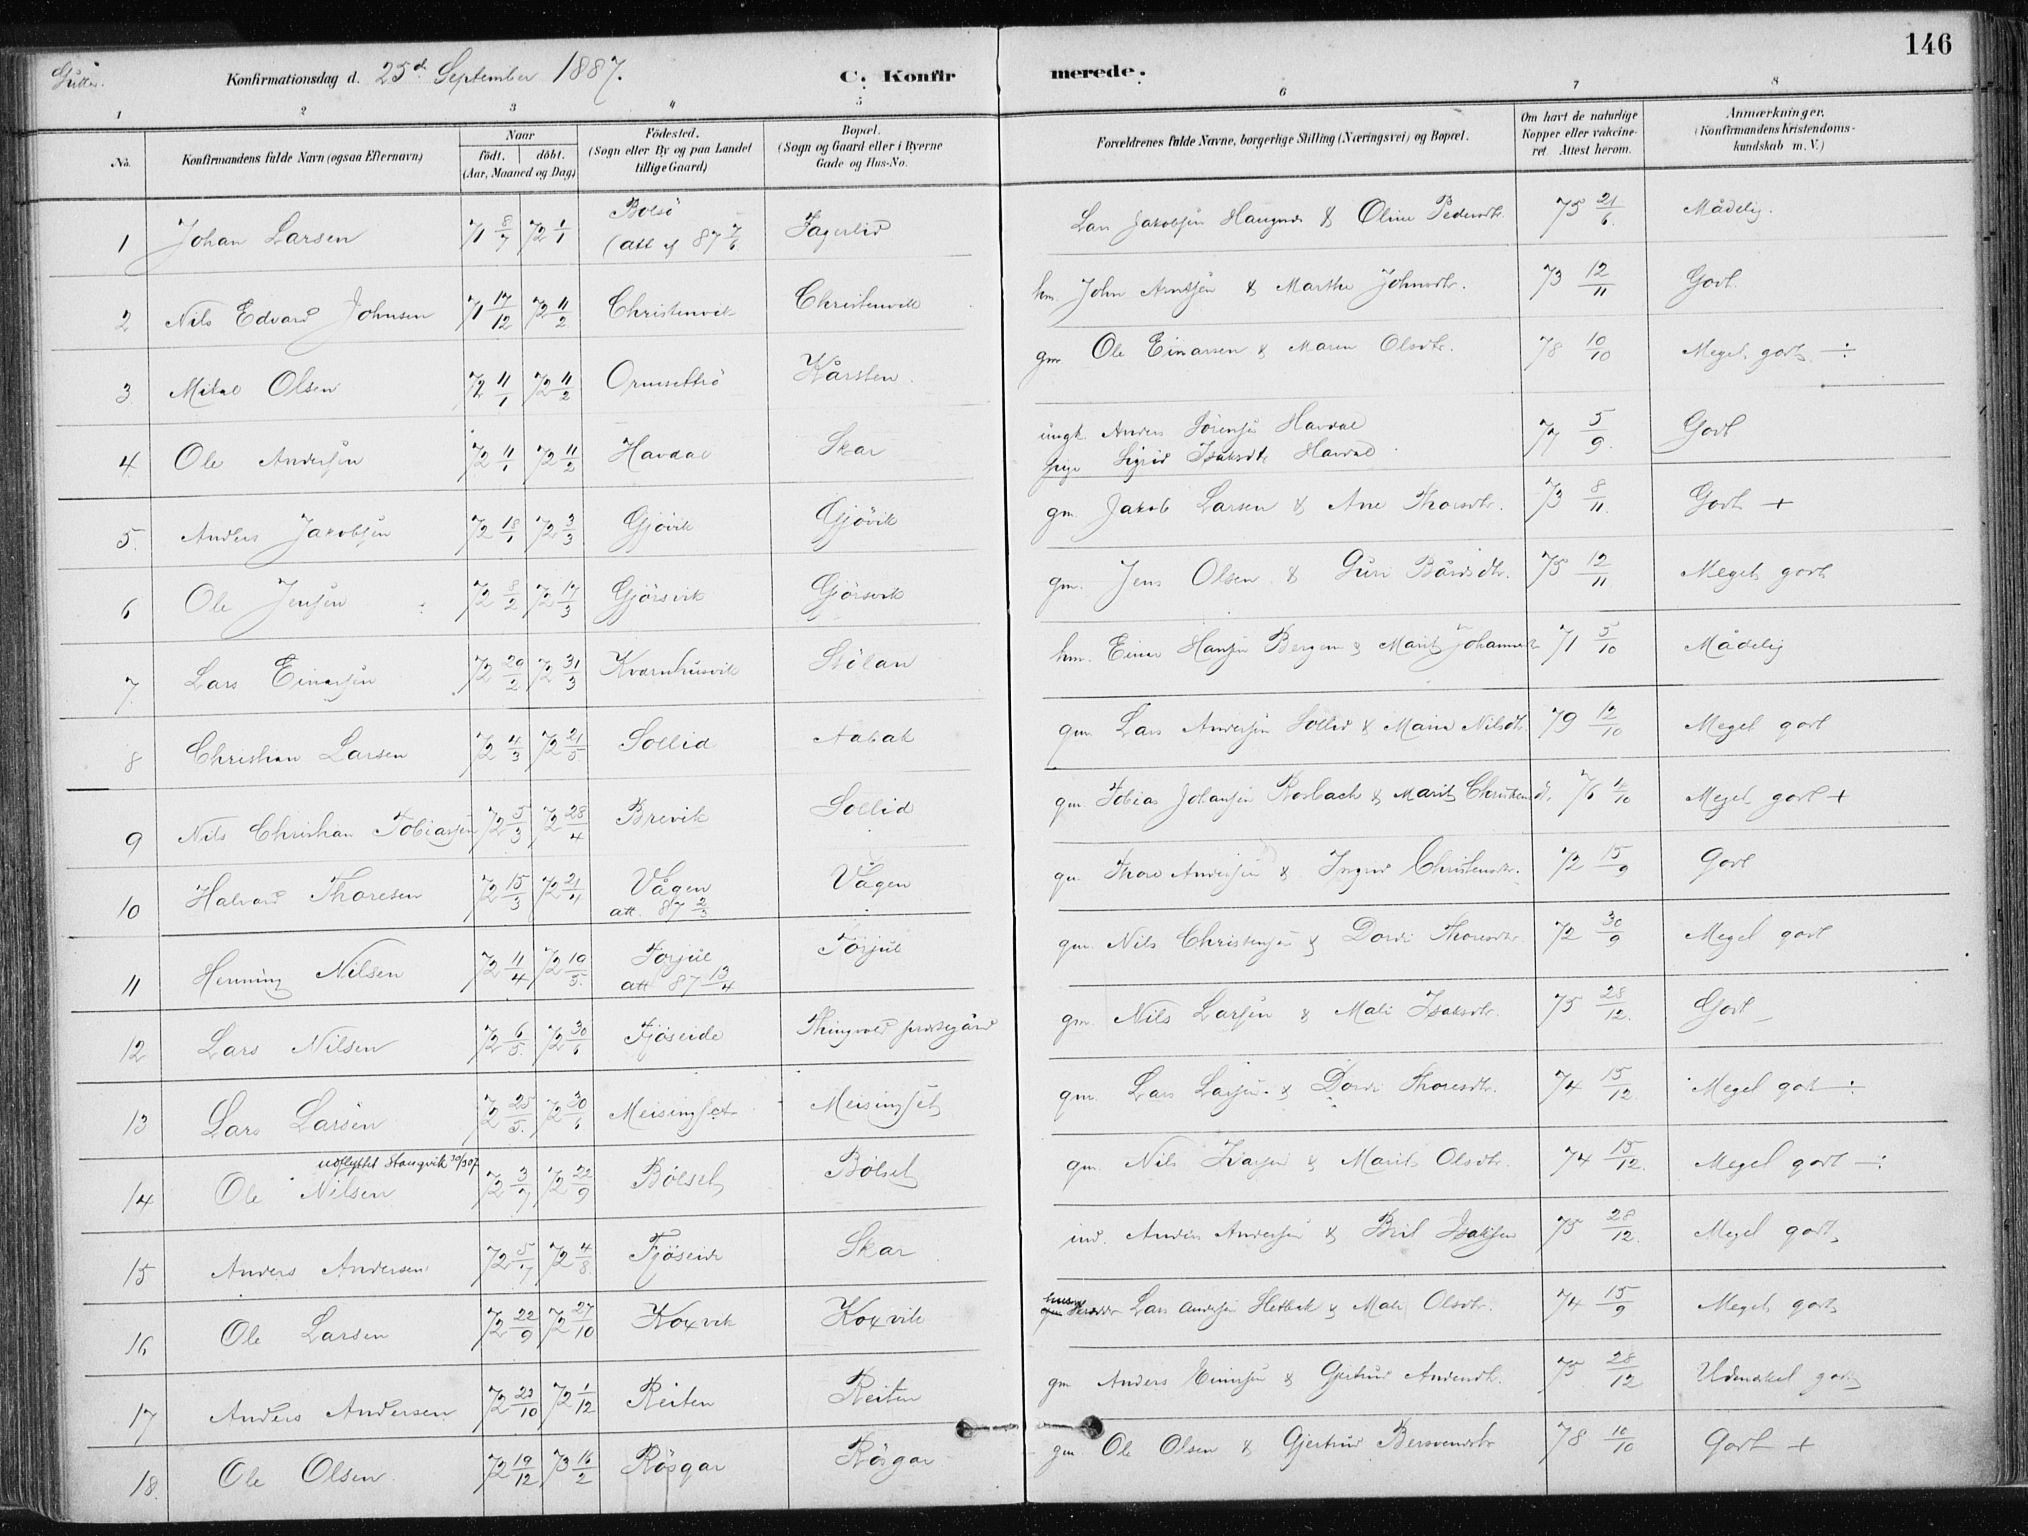 146
Gutter.
Konfirmationsdag d. 25d September 1887.
C. Konfirmerede.
1 2 3 4 5 6 7 8
No. Konfirmandens fulde Navn (ogsaa Efternavn) Naar födt. döbt. (Aar, Maaned og Dag) Födested. (Sogn eller By og paa Landet tillige Gaard) Bopæl. (Sogn og Gaard eller i Byerne Gade og Hus-No. Forældrenes fulde Navne, borgerlige Stilling (Næringsvei) og Bopæl. Om havt de naturlige Kopper eller vakcineret. Attest herom. Anmærkninger. (Konfirmandens Kristendomskundskab m. V.)
1 Johan Larsen 71 8/7 72 1/1 Bolsö (att af 87 7/6 Fagerlid Lars Jakobsen & Oline Pedersdtr 75 21/6 Mådelig.
2 Nils Edvard Johnsen 71 17/12 72 11/2 Christenvik Christenvik hm. John Arntsen & Marthe Johnsdtr. 73 12/11 Godt.
3 Mikal Olsen 72 11/1 72 11/2 Ormsettrö Kårsten gm Ole Einarsen & Maren Olsdtr. 78 10/10 Meget godt ÷
4 Ole Andersen 72 11/1 72 11/2 Havdal Skar ungk. Anders Sörensen Havdal
pige Sigrid Isaksdtr Havdal 77 5/9 Godt
5. Anders Jakobsen 72 18/1 72 3/3 Gjövik Gjövik gm. Jakob Larsen & Ane Thorsdtr. 73 8/11. Godt +
6 Ole Jensen 72 8/2 72 17/3 Gjörsvik Gjörsvik gm. Jens Olsen & Guri Bårdsdtr. 75 12/11 Meget godt
7. Lars Einarsen 72 29/2 72 31/3 Kvarnhusvik Stölan hm. Einar Hansen Bergem & Marit Johannesdtr 71 5/10 Mådelig
8 Christian Larsen 72 4/3 72 21/5 Sollid Aabak gm. Lars Andersen Sollid & Maria Nilsdtr 79 12/10 Meget godt
9 Nils Christian Tobiassen 72 5/3 72 28/4 Brevik Sollid gm. Tobias Johansen Rosbach & Marit Christensd. 76 1/10 Meget godt +
10 Halvard Thoresen 72 15/3 72 21/4 Vågen att. 87 2/3 Vågen gm Thore Andersen & Ingrid Christensdtr. 72 15/9 Godt
11 Henning Nilsen 72 11/4 72 19/5. Torjul att 87 13/4 Torjul gm. Nils Christensen & Dordi Thoresdtr. 72 30/9 Meget godt
12 Lars Nilsen 72 6/5. 72 30/6 Fjöseide Thingvold præstegård gm. Nils Larsen & Mali Isaksdtr. 75 28/12. Godt
13 Lars Larsen 72 25/5. 72 30/6 Meisingset Meisingset gm. Lars Larsen & Dordi Thoresdtr. 74 15/12. Meget godt ÷
udflyttet Stangvik 30/3 07
14 Ole Nilsen 72 3/7 72 22/9 Bölset Bölset gm. Nils & Marit Olsdtr. 74 15/12. Meget godt ÷
15 Anders Andersen 72 5/7 72 4/8. Fjöseide Skar ind. Anders Andersen & Brit Isaksen 75 28/12. Meget godt
16 Ole Larsen 72 22/9 72 27/10 Koxvik Koxvik husm Lars Andersen & Mali Olsdtr. 74 15/9 Meget godt
17 Anders Andersen 72 22/10 72 1/12 Reiten Reiten gm Anders Einarsen & Gjertrud Andersdtr. 75 28/12 Udmærket godt
18. Ole Olsen 72 19/12 73 16/2 Rösgar Rösgar gm Ole Olsen & Gjertrud Bersvendsdtr 78 10/10 Godt +